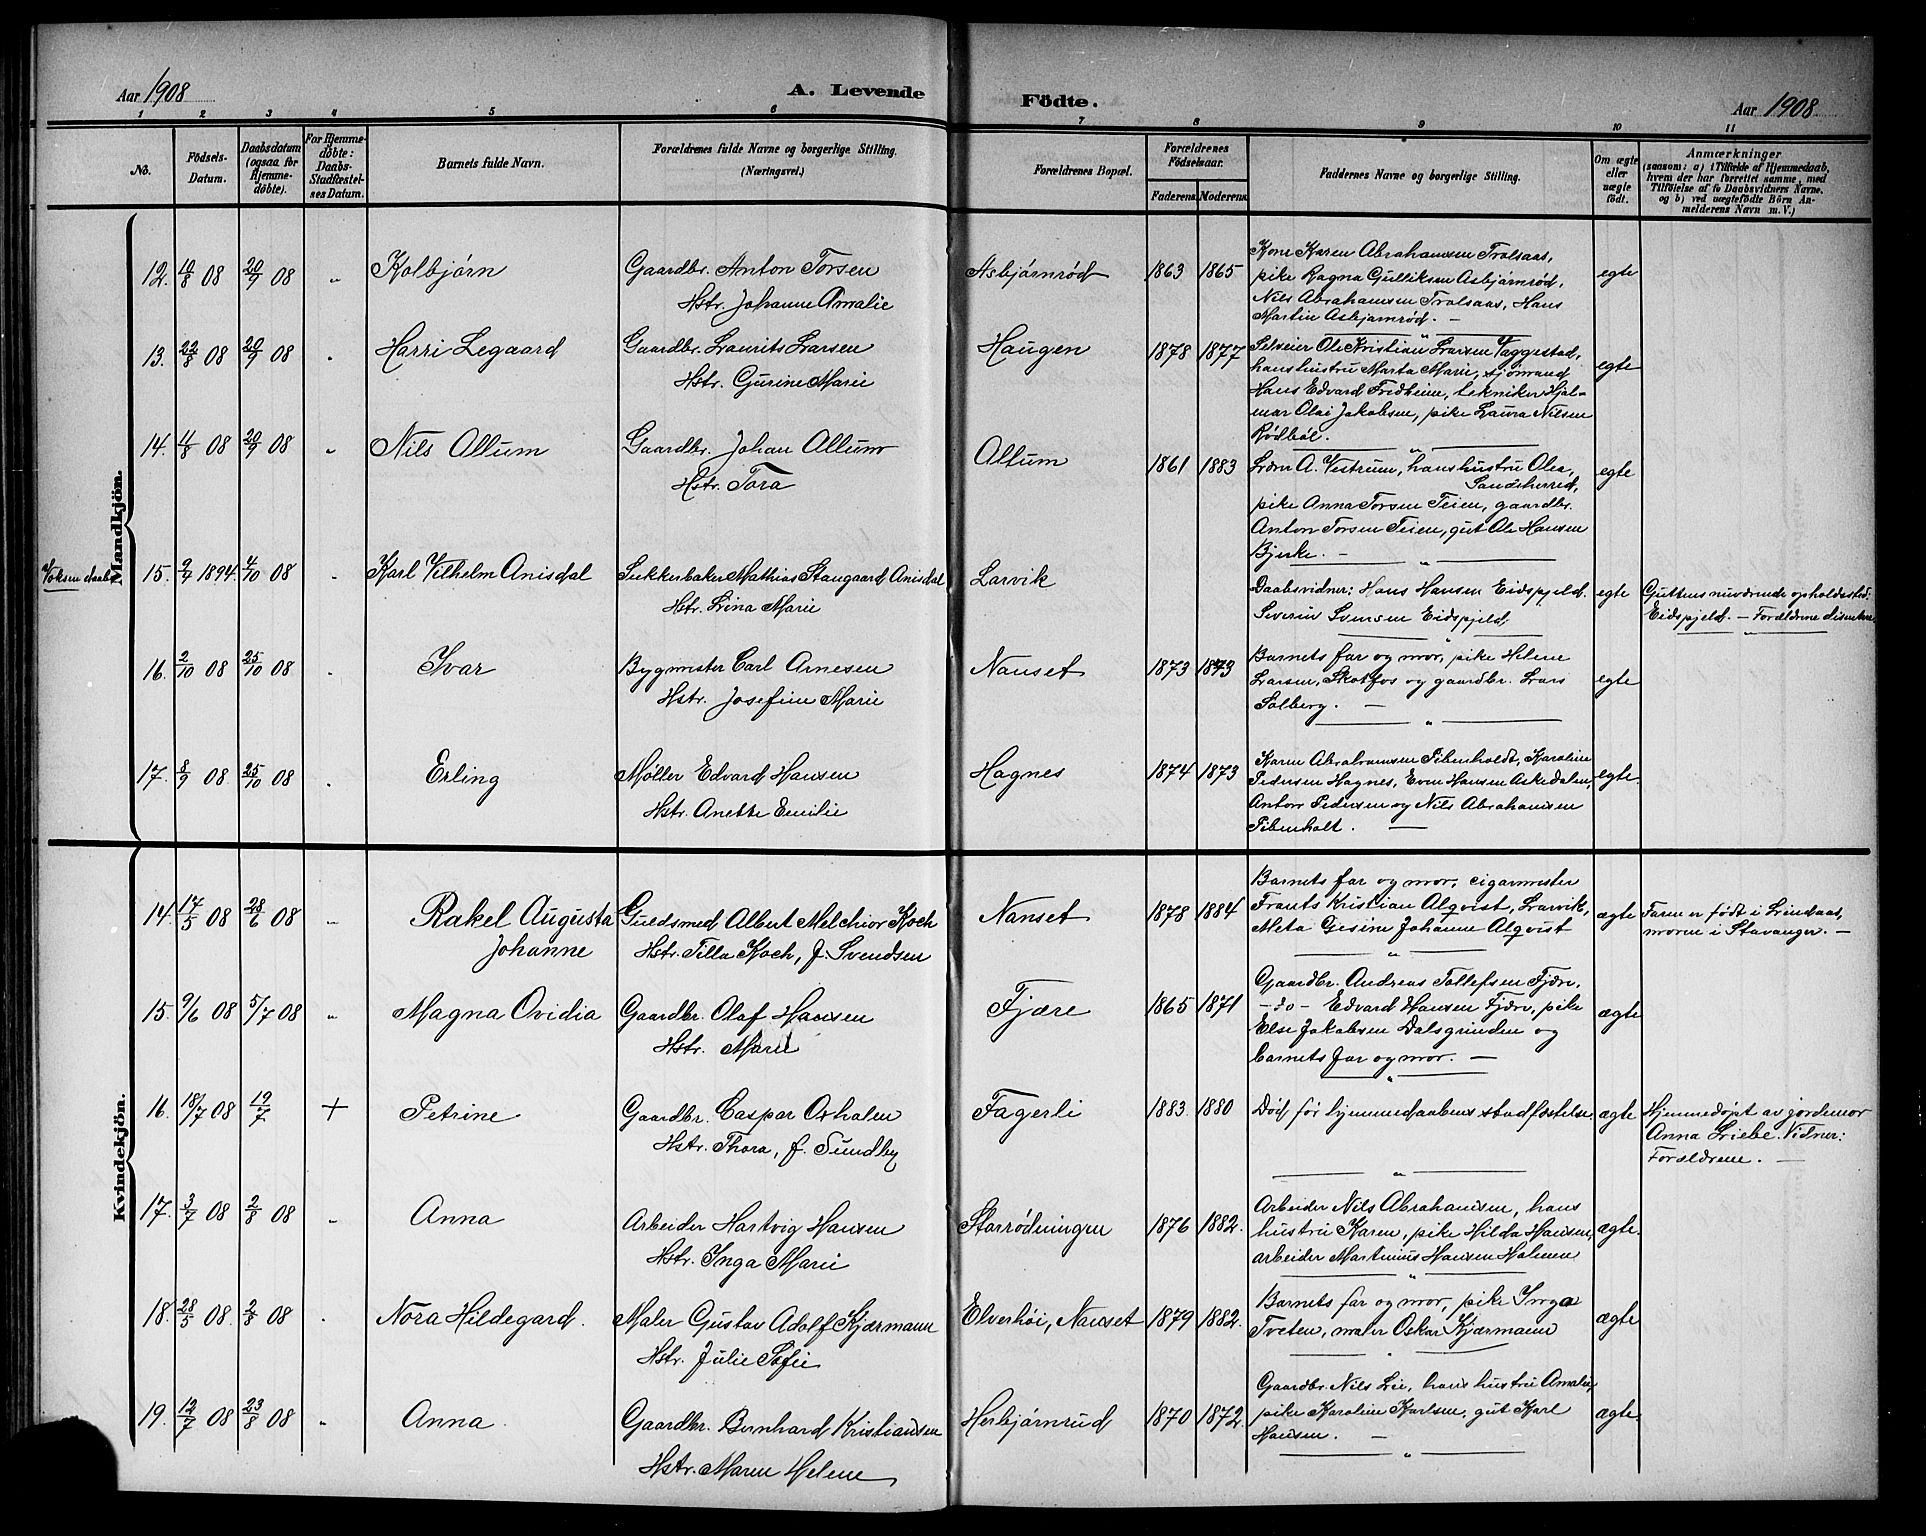 Aar 1908
A. Levende
Födte.
Aar 1908
1 2 3 4 5 6 7 8 9 10 11
No.
Födsels-
Datum.
Daabsdatum
(ogsaa for
Hjemme-
døbte).
For Hjemme-
døbte:
Daabs-
Stadfæstel-
ses Datum.
Barnets fulde Navn.
Forældrenes fulde Navne og borgerlige Stilling.
(Næringsvei.)
Forældrenes Bopæl.
Forældrenes
Födselsaar.
Faderens. Moderens.
Faddernes Navne og borgerlige Stilling.
Om ægte
eller
uægte
födt.
Anmærkninger
(saasom: a) i Tilfælde af Hjemmedaab,
hvem der har forrettet samme, med
Tilföielse af to Daabsvidners Navne.
og b) ved uægtefödte Börn An-
melderens Navn m. V.)
Mandkjön.
12. 10/8 08 20/9 08 „ Kolbjørn
Gaardbr. Anton Torsen
Hstr. Johanne Amalie
Asbjørnrød 1863 1865
Kone Karen Abrahamsen Trolsaas,
pike Ragna Gulliksen Asbjørnrød,
Nils Abrahamsen Trolsaas, Hans
Martin Asbjørnrød. —
egte
13. 22/8 08 20/9 08 „ Harri Legaard
Gaardbr. Laurits Larsen
Hstr. Gurine Marie
Haugen 1878 1877
Selveier Ole Kristian Larsen Vaggestad,
hans hustru Marta Marie, sjømand
Hans Edvard Fridheim, tekniker Hjal-
mar Olai Jakobsen, pike Laura Nilsen
Rødbøl.
egte
14. 4/8 08 20/9 08 „ Nils Allum
Gaardbr. Johan Allum
Hstr. Tora
Allum 1861 1883
Lærer A. Vestrum, hans hustru Olea,
Sandeherred,
pike Anna Torsen Teien, gaardbr.
Anton Torsen Teien, gut Ole Hansen
Bjerke. —
egte
Voksen daab
15. 2/4 1894. 4/10 08 „ Karl Vilhelm Anisdal
Sukkerbaker Mathias Staugaard Anisdal
Hstr. Lina Marie
Larvik
Daabsvidner: Hans Hansen Eidsfjeld.
Severin Svensen Eidsfjeld,
egte
Guttens nuværende opholdssted:
Eidsfjeld. — Forældrene dissentere
16. 2/10 08 25/10 08 „ Ivar
Bygmester Carl Arnesen
Hstr. Josefine Marie
Nanset 1873 1873
Barnets far og mor, pike Helene
Larsen, Skotfos og gaardbr. Lars
Solberg. —
egte
17. 8/9 08 25/10 08 „ Erling
Møller Edvard Hansen
Hstr. Anette Emilie
Hagnes 1874 1873
Karen Abrahamsen Pibenholdt, Karoline
Pedersen Hagnes, Even Hansen Askedalen,
Anton Pedersen og Nils Abrahamsen
Pibenholt. —
egte
Kvindekjön.
14. 17/5 08 28/6 08 „ Rakel Augusta
Johanne
Guldsmed Albert Melchior Koch
Hstr. Tilla Koch, f. Svendsen
Nanset 1878 1884
Barnets far og mor, cigarmester
Frants Kristian Alqvist, Larvik,
Meta Gesine Johanne Alqvist
ægte
Faren er født i Lindaas,
moren i Stavanger. —
15. 9/6 08 5/7 08 „ Magna Ovidia
Gaardbr. Olaf Hansen
Hstr. Marie
Fjære 1865 1871
Gaardbr. Andreas Tollefsen Fjære,
— do — Edvard Hansen Fjære, pike
Else Jakobsen Dalsgrinden og
barnets far og mor. —
ægte
16. 18/7 08 19/7 + Petrine
Gaardbr. Caspar Oxholm
Hstr. Thora, f. Sundby
Fagerli 1883. 1880
Død før hjemmedaabens stadfæstelse.
ægte
Hjemmedøpt av jordemor
Anna Liebe. Vidner:
Forældrene. —
17. 3/7 08 2/8 08 „ Anna
Arbeider Hartvig Hansen
Hstr. Inga Marie
Starrødningen 1876 1882.
Arbeider Nils Abrahamsen, hans
hustru Karen, pike Hilda Hansen,
arbeider Martinius Hansen Holmen
ægte.
18. 28/5 08. 2/8 08 „ Nora Hildegard.
Maler Gustav Adolf Kjærmann
Hstr. Julie Sofie
Elverhøi, Nanset 1879 1882.
Barnets far og mor, pike Inga
Tveten, maler Oskar Kjærmann
ægte
19. 12/7 08 23/8 08 „ Anna
Gaardbr. Bernhard Kristiansen
Hstr. Maren Helene
Herbjørnrud 1870 1872.
Gaardbr. Nils Lie, hans hustru Amalie,
pike Karoline Karlsen, gut Karl
Hansen. —
ægte